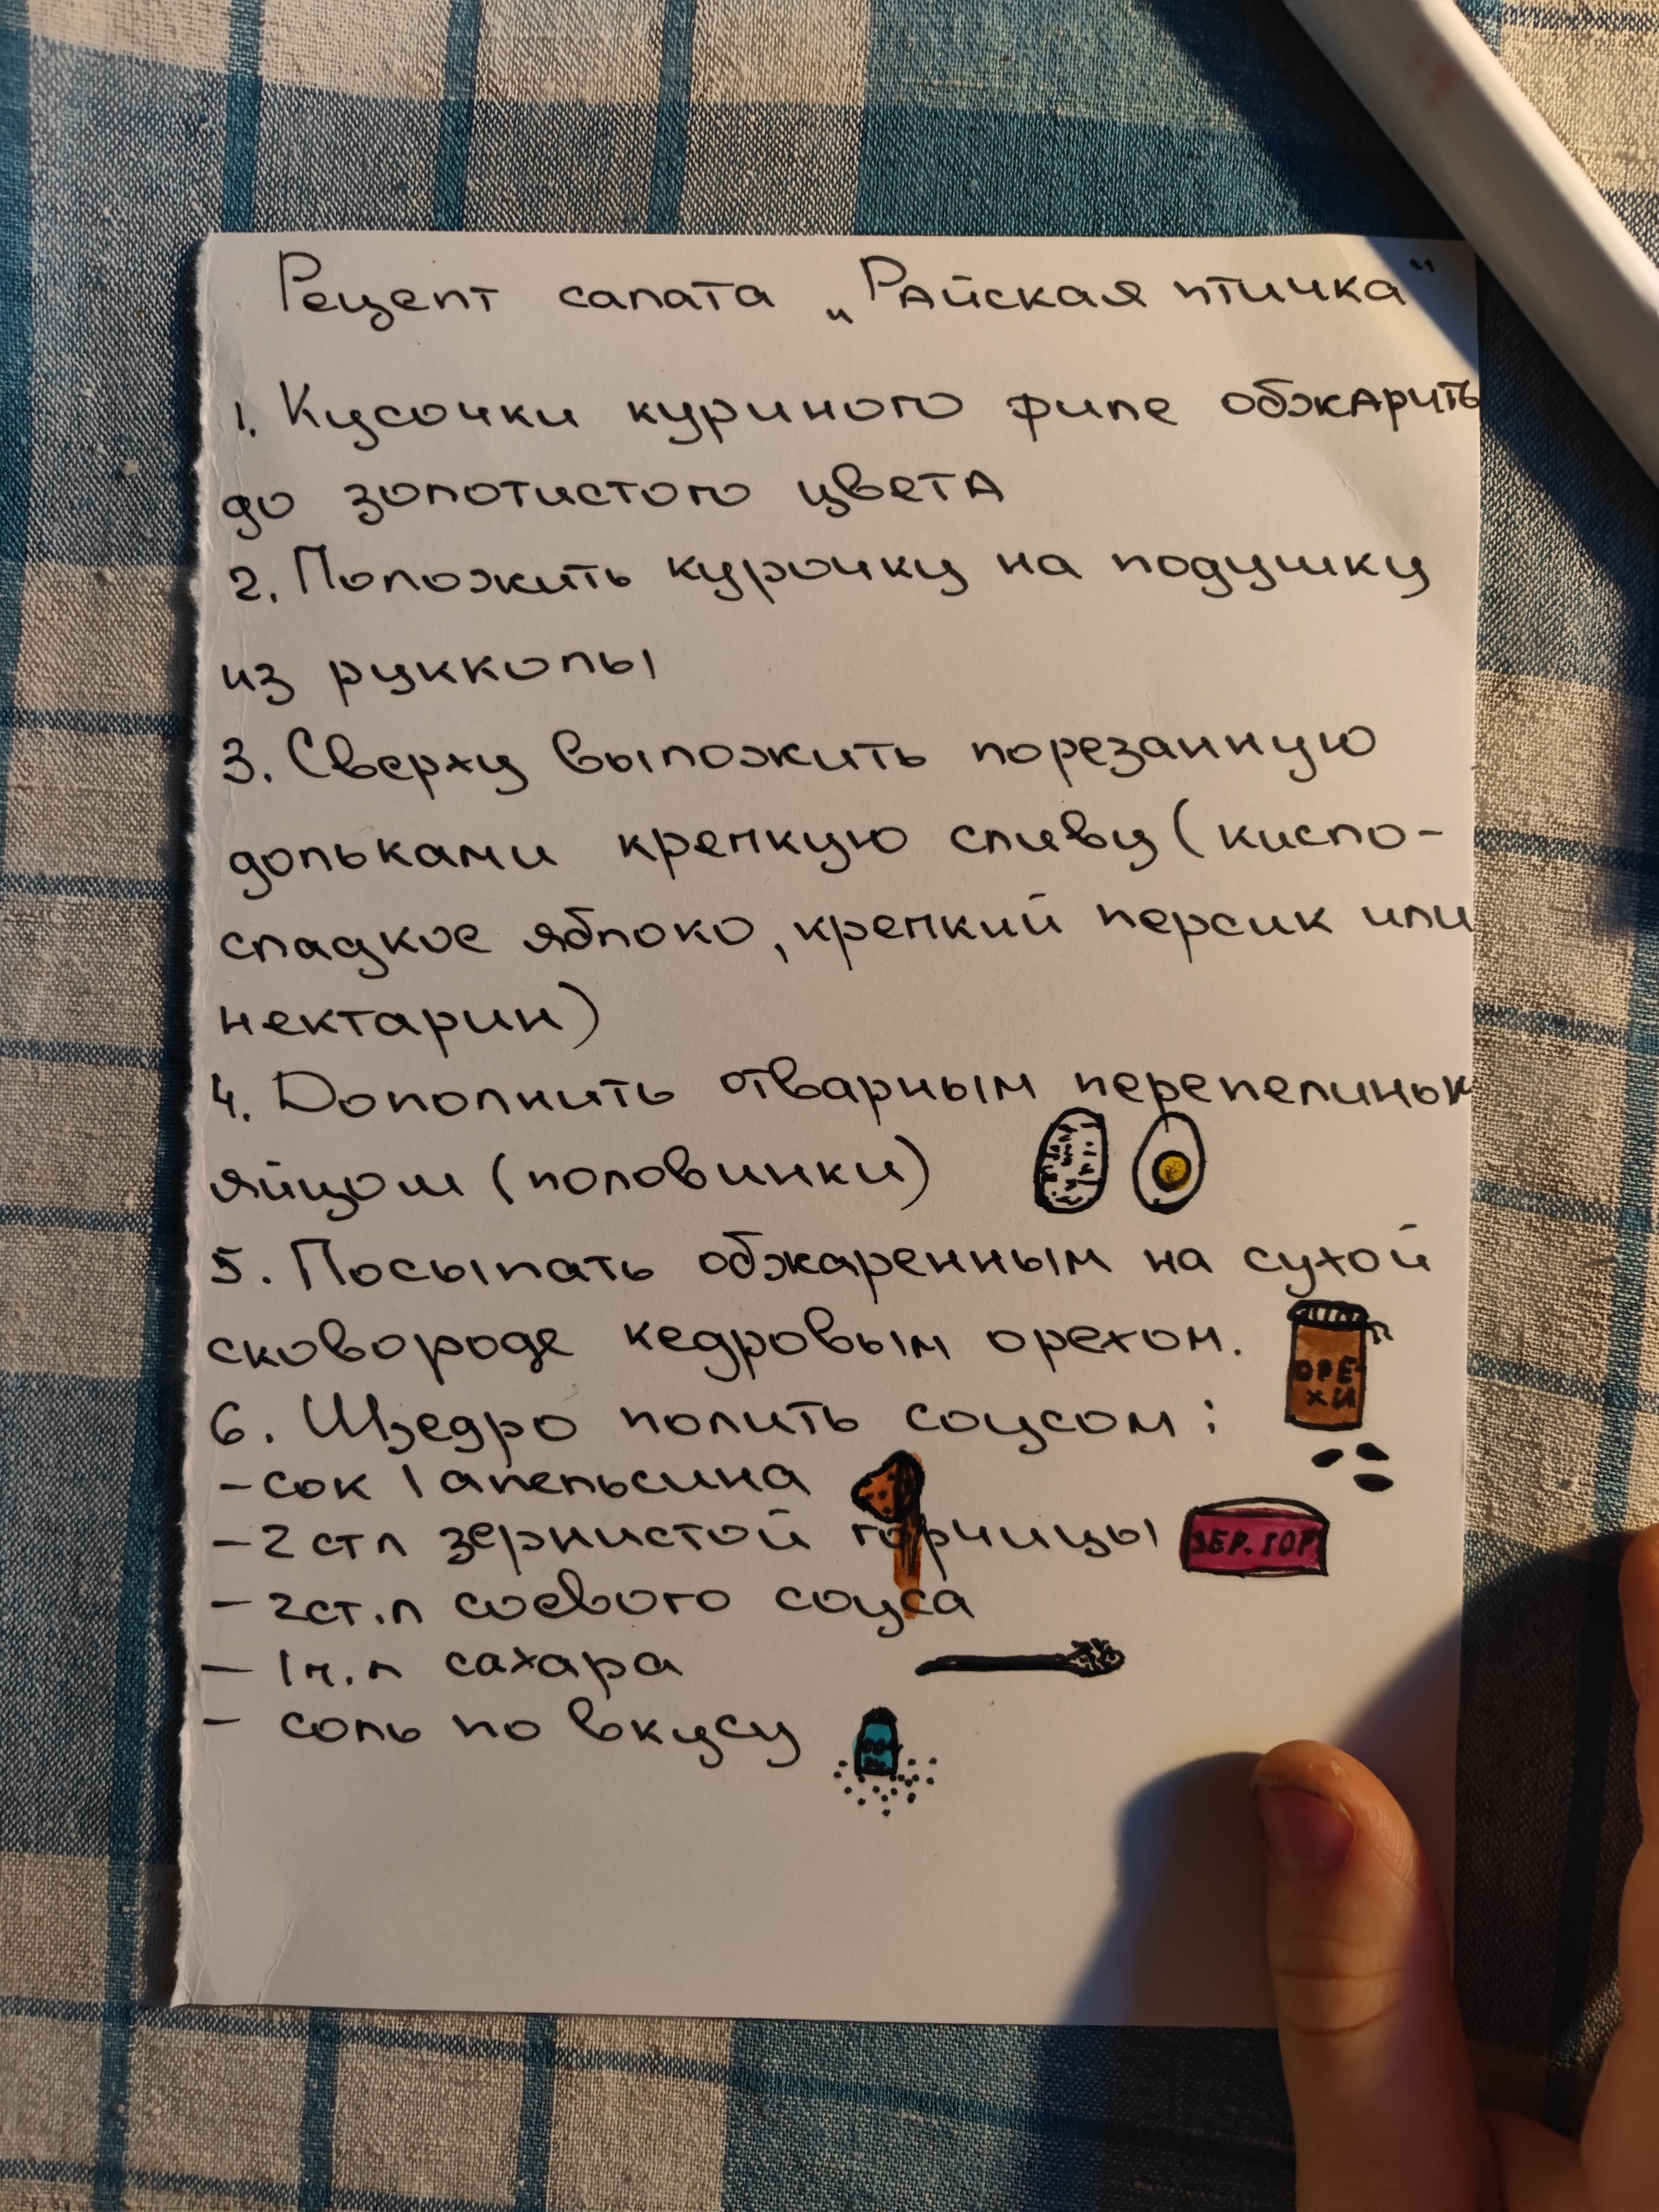 Рецепт салата „Райская птичка"
1. Кусочки куриного филе обжарить
до золотистого цвета
2. Положить курочку на подушку
из рукколы
3. Сверху выложить порезанную
дольками крепкую сливу (кисло-
сладкое яблоко, крепкий персик или
нектарин)
4. Дополнить отварным перепелиным
яйцом (половинки)
5. Посыпать обжаренным на сухой
сковороде кедровым орехом.
ОРЕ-
ХИ
6. Щедро полить соусом:
- сок 1 апельсина
- 2 ст л зернистой горчицы
ЗЕР. ГОР
- 2 ст. л соевого соуса
- 1 ч. л сахара
- соль по вкусу